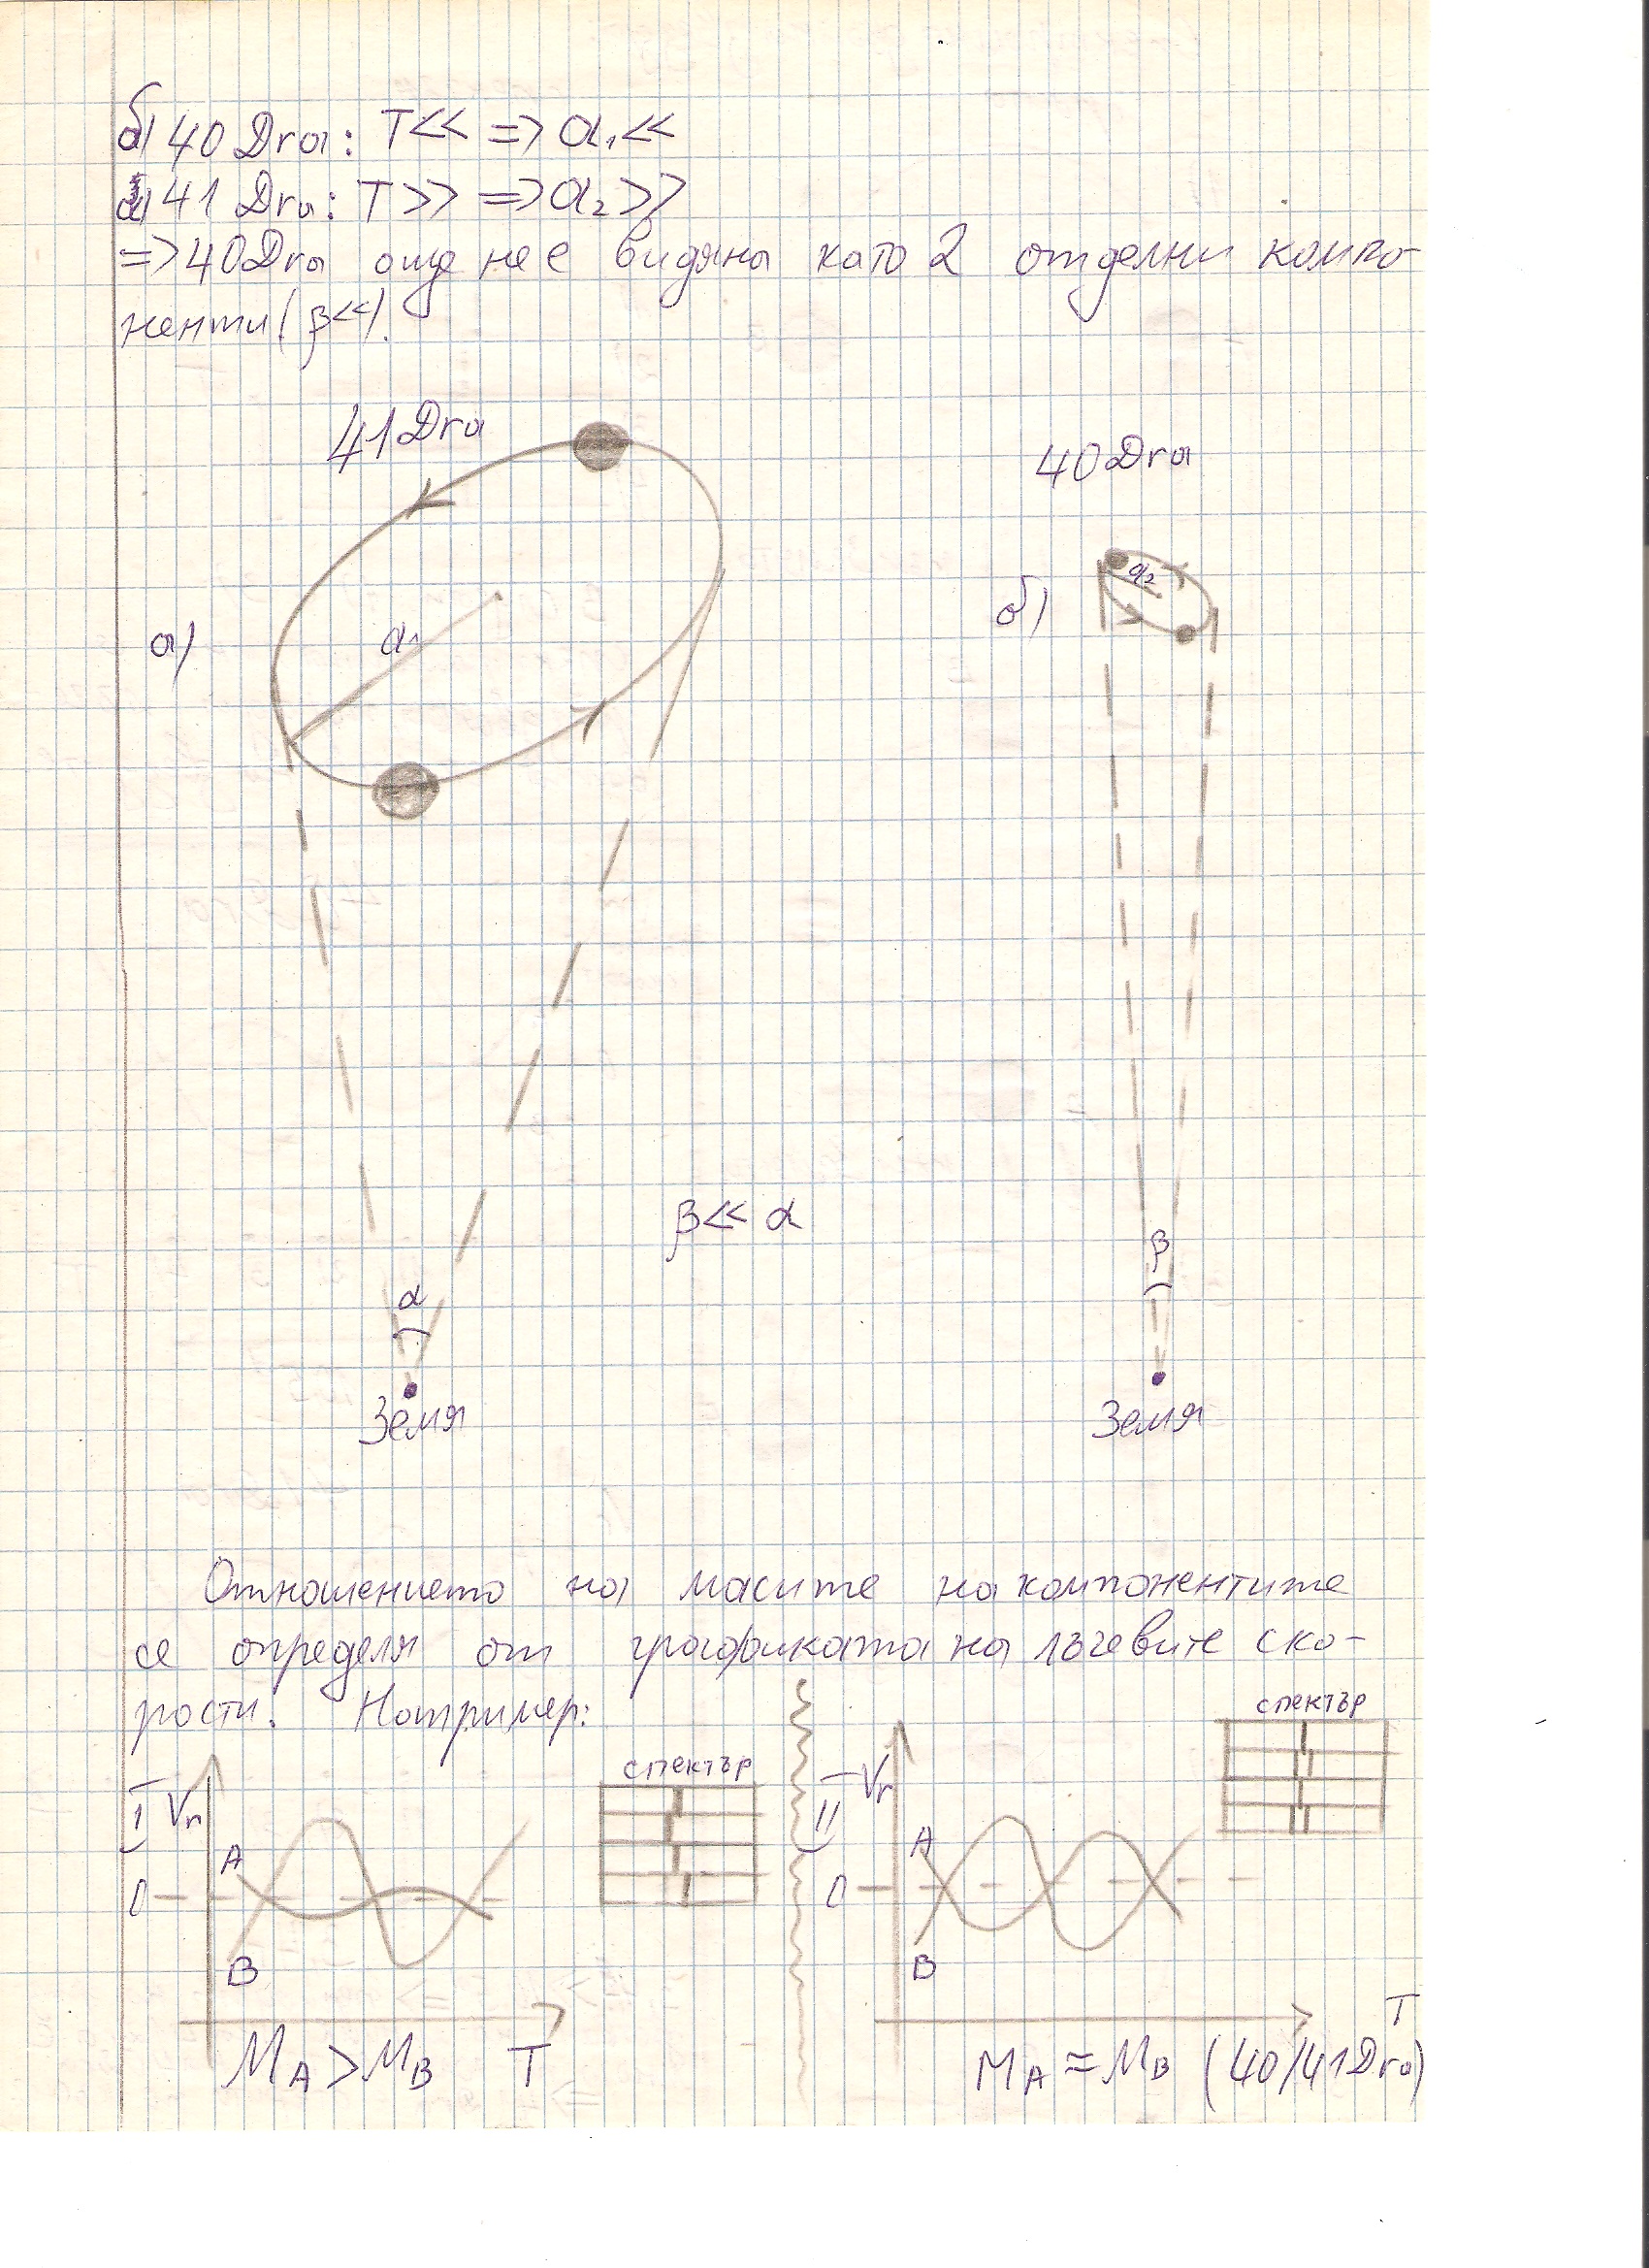 б) 40 Dra: T<< => a₁<<
а) 41 Dra: T>> => a₂>>
=> 40 Dra още не е видяна като 2 отделни компо-
ненти (β<<).
41 Dra
40 Dra
а)
a₁
б)
a₂
β<< α
α
β
Земя
Земя
Отношението на масите на компонентите
се определя от графиката на лъчевите ско-
рости. Например:
I
Vr
A
0
B
спектър
MA > MB
T
II
Vr
A
0
B
спектър
T
MA ≈ MB (40/41 Dra)